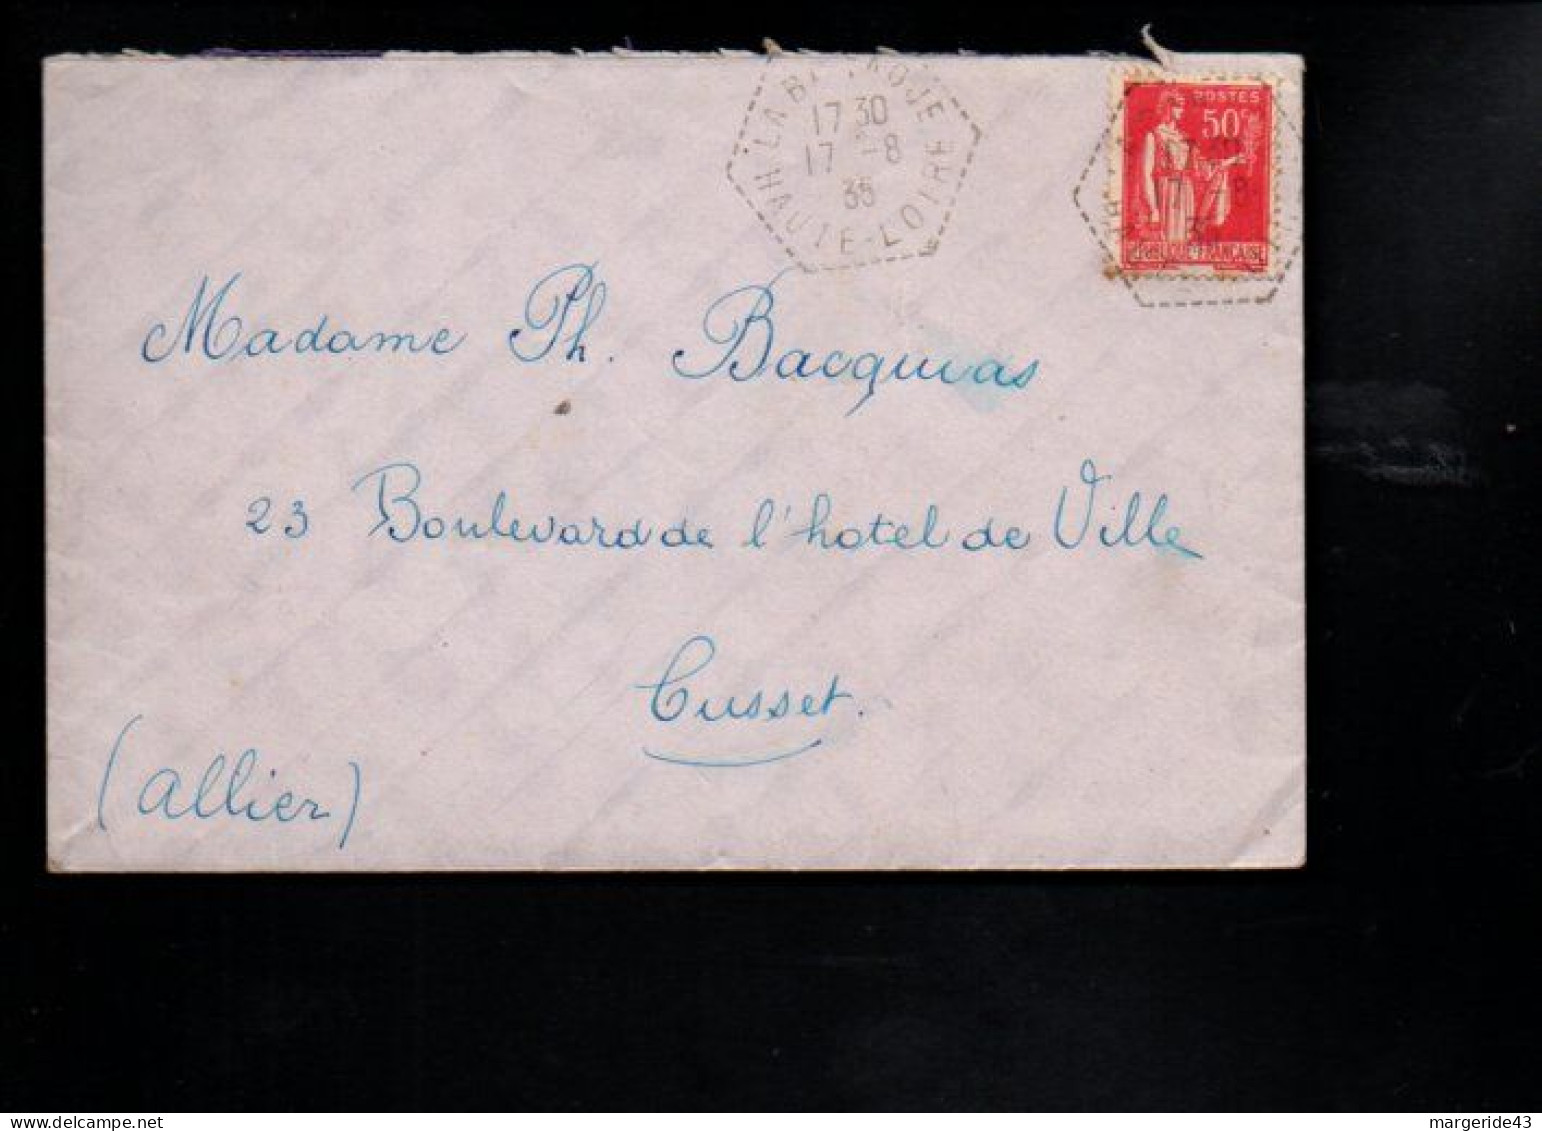 17 30
17 -8
35
HAUTE-LOIRE
POSTES
50c
RÉPUBLIQUE-FRANÇAISE
Madame Ph. Bacquias
23 Boulevard de l'hotel de Ville
Cusset.
(Allier)
margeride43